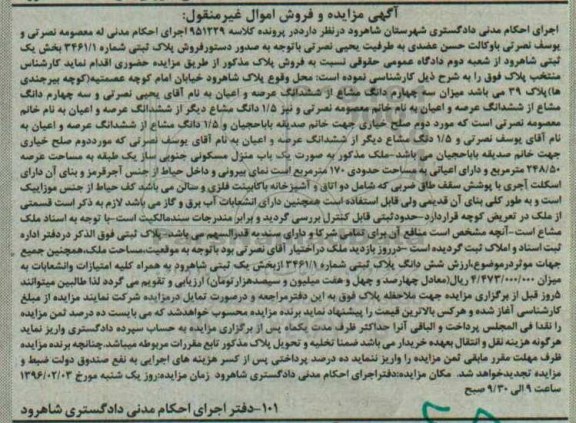 آگهی مزایده و فروش اموال غیرمنقول:
اجرای احکام مدنی دادگستری شهرستان شاهرود درنظر دارددر پرونده کلاسه ۹۵۱۲۲۹ اجرای احکام مدنی له معصومه نصرتی و
یوسف نصرتی باوکالت حسن عضدی به طرفیت یحیی نصرتی باتوجه به صدور دستورفروش پلاک ثبتی شماره ۳۴۶۱/۱ بخش یک
ثبتی شاهرود از شعبه دوم دادگاه عمومی حقوقی نسبت به فروش پلاک مذکور از طریق مزایده حضوری اقدام نماید کارشناس
منتخب پلاک فوق را به شرح ذیل کارشناسی نموده است: محل وقوع پلاک شاهرود خیابان امام کوچه عصمتیه(کوچه بیرجندی
ها)پلاک ۳۹ می باشد میزان سه چهارم دانگ مشاع از ششدانگ عرصه و اعیان به نام آقای یحیی نصرتی و سه چهارم دانگ
مشاع از ششدانگ عرصه و اعیان به نام خانم معصومه نصرتی و نیز ۱/۵ دانگ مشاع دیگر از ششدانگ عرصه و اعیان به نام خانم
معصومه نصرتی است که مورد دوم صلح خیاری جهت خانم صدیقه باباحجیان و ۱/۵ دانگ مشاع از ششدانگ عرصه و اعیان به
نام آقای یوسف نصرتی و ۱/۵ دنگ مشاع دیگر از ششدانگ عرصه و اعیان به نام آقای یوسف نصرتی که مورددوم صلح خیاری
جهت خانم صدیقه باباحجیان می باشد-ملک مذکور به صورت یک باب منزل مسکونی جنوبی ساز یک طبقه به مساحت عرصه
۲۴۸/۵۰ مترمربع و دارای اعیانی به مساحت حدودی ۱۷۰ مترمربع است نمای بیرونی و داخل حیاط از جنس آجرقرمز و بنای آن دارای
اسکلت آجری با پوشش سقف طاق ضربی که شامل دو اتاق و آشپزخانه باکابینت فلزی و سالن می باشد کف حیاط از جنس موزاییک
است و به طور کلی بنای آن قدیمی ولی قابل استفاده است همچنین دارای انشعابات آب برق و گاز می باشد لازم به ذکر است قسمتی
از ملک در تعریض کوچه قراردارد-حدودثبتی قابل کنترل بررسی گردید و برابر مندرجات سندمالکیت است-با توجه به اسناد ملک
مشاع است-آنچه مشخص است منافع آن برای تمامی شرکا و دارای سند به قدرالسهم می باشد- پلاک ثبتی فوق الذکر دردفتر اداره
ثبت اسناد و املاک ثبت گردیده است -درروز بازدید ملک دراختیار آقای نصرتی بود باتوجه به موقعیت،مساحت ملک،همچنین جمیع
جهات موثردرموضوع،ارزش شش دانگ پلاک ثبتی شماره ۳۴۶۱/۱ ازبخش یک ثبتی شاهرود به همراه کلیه امتیازات وانشعابات به
میزان ۴/۴۷۳/۰۰۰/۰۰۰ ریال(معادل چهارصد و چهل و هفت میلیون و سیصدهزارتومان) ارزیابی و تقویم می گردد لذا طالبین میتوانند
۵روز قبل از برگزاری مزایده جهت ملاحظه پلاک فوق به این دفترمراجعه و درصورت تمایل درمزایده شرکت نمایند مزایده از مبلغ
کارشناسی آغاز شده و هرکس بالاترین قیمت را پیشنهاد نماید برنده مزایده محسوب خواهدشد که می بایست ده درصد ثمن مزایده
را نقدا فی المجلس پرداخت و الباقی آنرا حداکثر ظرف مدت یکماه پس از برگزاری مزایده به حساب سپرده دادگستری واریز نماید
هرگونه هزینه نقل و انتقال بعهده خریدار می باشد ضمنا تخلیه و تحویل پلاک مذکور تابع مقررات مربوطه میباشد.چنانچه برنده مزایده
ظرف مهلت مقرر مابقی ثمن مزایده را واریز ننماید ده درصد پرداختی پس از کسر هزینه های اجرایی به نفع صندوق دولت ضبط و
مزایده تجدیدخواهد شد. مکان مزایده:دفتراجرای احکام مدنی دادگستری شاهرود زمان مزایده:روز یک شنبه مورخ ۱۳۹۶/۰۲/۰۳
ساعت ۹ الی ۹/۳۰ صبح
۱۰۱-دفتر اجرای احکام مدنی دادگستری شاهرود